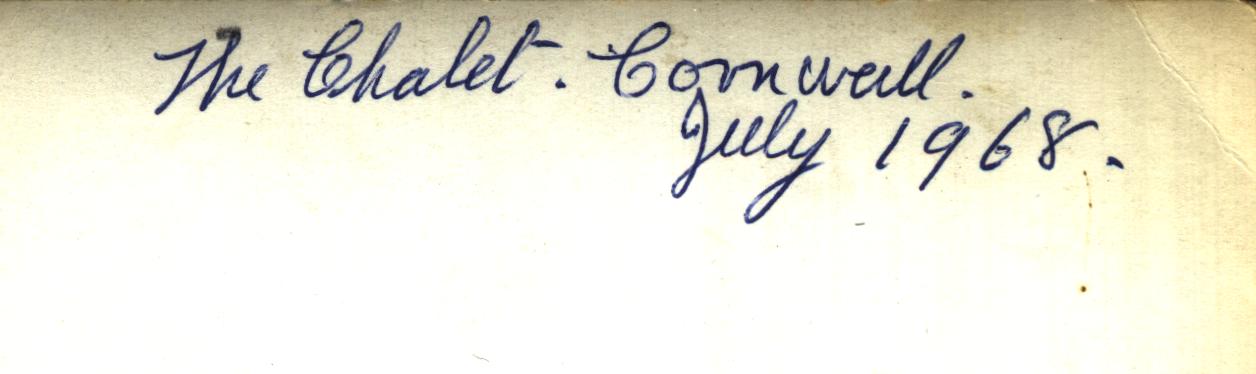 The Chalet. Cornwall.
July 1968.